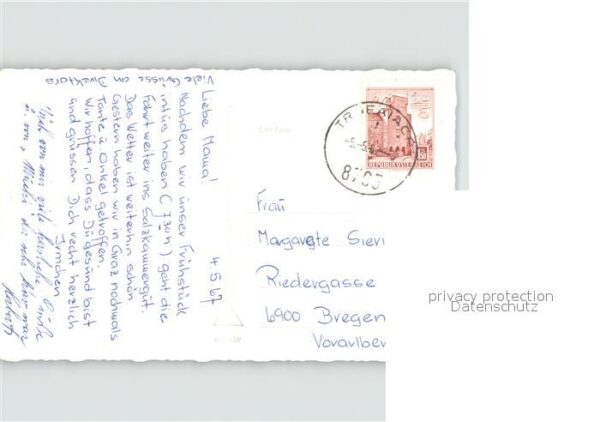 4.5.67
Liebe Mama!
Nachdem wir unser Frühstück
intus haben (730h) geht die
Fahrt weiter ins Salzkammergut.
Das Wetter ist weiterhin schön
Gestern haben wir in Graz nochmals
Tante u. Onkel getroffen.
Wir hoffen, dass Du gesund bist
und grüssen Dich recht herzlich
Irmchen
Viele Grüsse an Direktors
Auch von mir viele herzliche Grüße
TROFAIACH
8793
REPUBLIK ÖSTERREICH
Frau
Margarete Sievi
Riedergasse
6900 Bregen
Vorarlber
privacy protection
Datenschutz